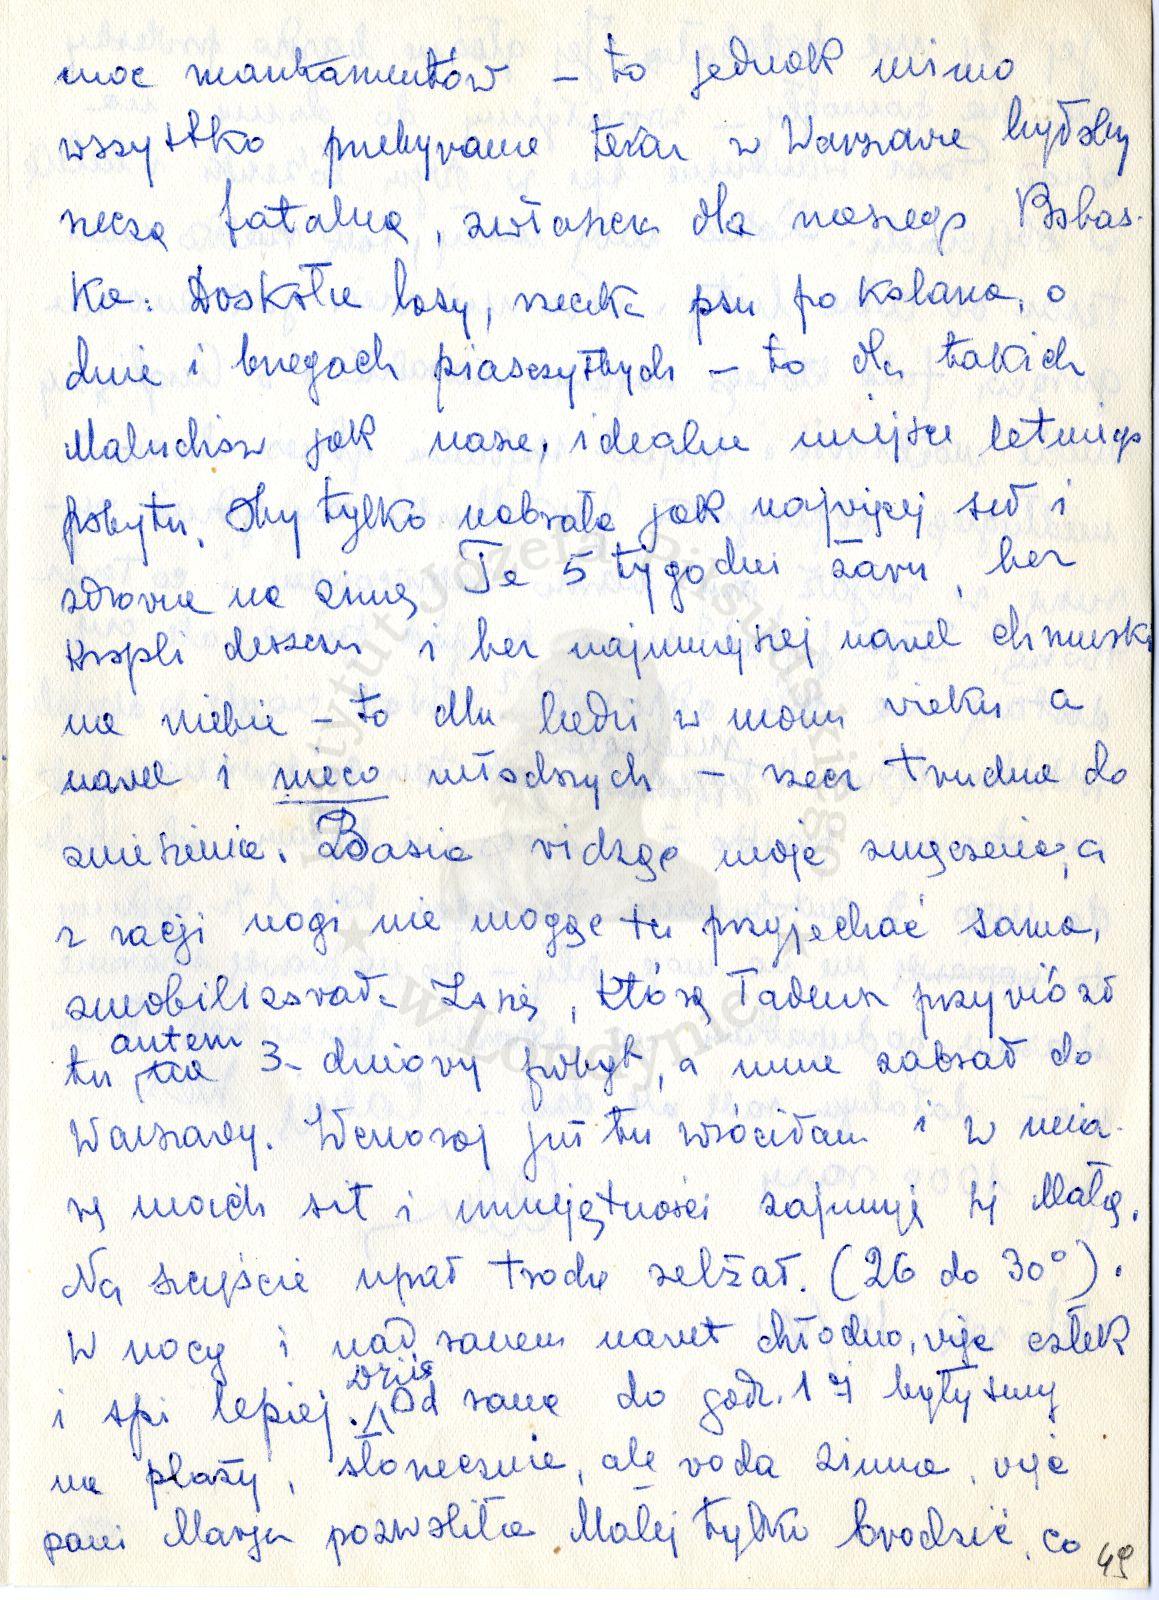 moc mankamentów – to jednak mimo
wszystko przebywanie teraz w Warszawie byłoby
rzeczą fatalną, zwłaszcza dla naszego Bobas-
ka. Dookoła lasy, rzeczka psu po kolana, o
dnie i brzegach piaszczystych – to dla takich
Maluchów jak nasze, idealne miejsce letniego
pobytu. Oby tylko nabrała jak najwięcej sił i
zdrowia na zimę. Te 5 tygodni żaru, bez
kropli deszczu i bez najmniejszej nawet chmurki
na niebie – to dla ludzi w moim wieku a
nawet i nieco młodszych – rzecz trudna do
zniesienia. Basia widząc moje zmęczenie, a
z racji nogi nie mogąc tu przyjechać sama,
zmobilizowała Zosię, którą Tadeusz przywiózł
tu autem na 3-dniowy pobyt, a mnie zabrał do
Warszawy. Wczoraj już tu wróciłam i w mia-
rę moich sił i umiejętności zajmuję się Małą.
Na szczęście upał trochę zelżał. (26 do 30°).
W nocy i nad ranem nawet chłodno, więc człek
i śpi lepiej. Dziś od rana do godz. 17 byłyśmy
na plaży, słonecznie, ale woda zimna, więc
pani Marja pozwoliła Małej tylko brodzić, co
49
Instytut Józefa Piłsudskiego
w Londynie